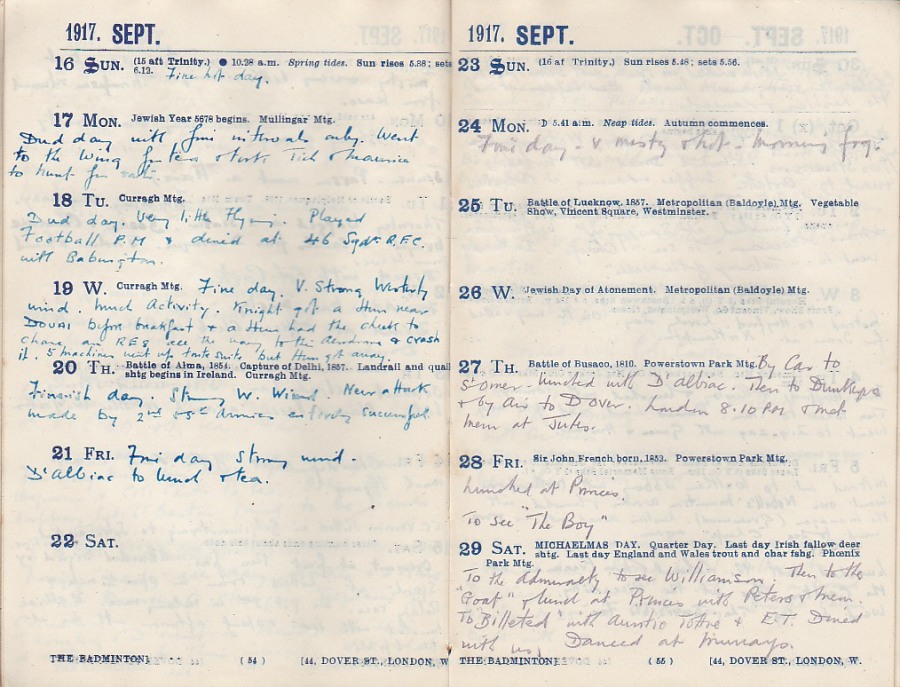 1917. SEPT.
16 SUN. (15 aft Trinity.) ● 10.28 a.m. Spring tides. Sun rises 5.38; sets
6.12. Fine hot day.
17 MON. Jewish Year 5678 begins. Mullingar Mtg.
Dud day with fine intervals only. Went
to the Wing for tea & took Tich & Maurice
to hunt for
18 TU. Curragh Mtg.
Dud day. Very little flying. Played
Football P.M & dined at 46 Sqdn R.F.C.
with Babington.
19 W. Curragh Mtg. Fine day. V. Strong Westerly
wind. Much Activity. Knight got a Hun near
DOUAI before breakfast & a Hun had the cheek to
chase an RE8 the way to the Aerodrome & crash
it. 5 machines went up but Hun got away.
20 TH. Battle of Alma, 1854. Capture of Delhi, 1857. Landrail and quail
shtg begins in Ireland. Curragh Mtg.
Finnish day. Strong W. Wind. New attack
made by 2nd & 5th Armies entirely successful.
21 FRI. Fine day Strong wind.
D'albiac to lunch & tea.
22 SAT.
THE BADMINTON] (54) [44, DOVER ST., LONDON, W
1917. SEPT.
23 SUN. (16 af Trinity.) Sun rises 5.48; sets 5.56.
24 MON. D 5.41 a.m. Neap tides. Autumn commences.
Fine day - v misty & hot - morning fog.
25 TU. Battle of Lucknow, 1857. Metropolitan (Baldoyle) Mtg. Vegetable
Show, Vincent Square, Westminster.
26 W. Jewish Day of Atonement. Metropolitan (Baldoyle) Mtg.
27 TH. Battle of Busaco, 1810. Powerstown Park Mtg. By Car to
St Omer - lunched with D'albiac. Then to Dunkerque
& by Air to DOVER. London 8.10 PM & met
them at Jules.
28 FRI. Sir John French born, 1852. Powerstown Park Mtg.
Lunched at Princes.
To see "The Boy"
29 SAT. MICHAELMAS DAY. Quarter Day. Last day Irish fallow deer
shtg. Last day England and Wales trout and char fshg. Phoenix
Park Mtg.
To the Admiralty to see Williamson. Then to the
"Goat" & lunch at Princes with Peters & them.
To "Billeted" with Auntie & E.T. Dined
with us. Danced at Murrays.
THE BADMINTON] (55) [44, DOVER ST., LONDON, W.